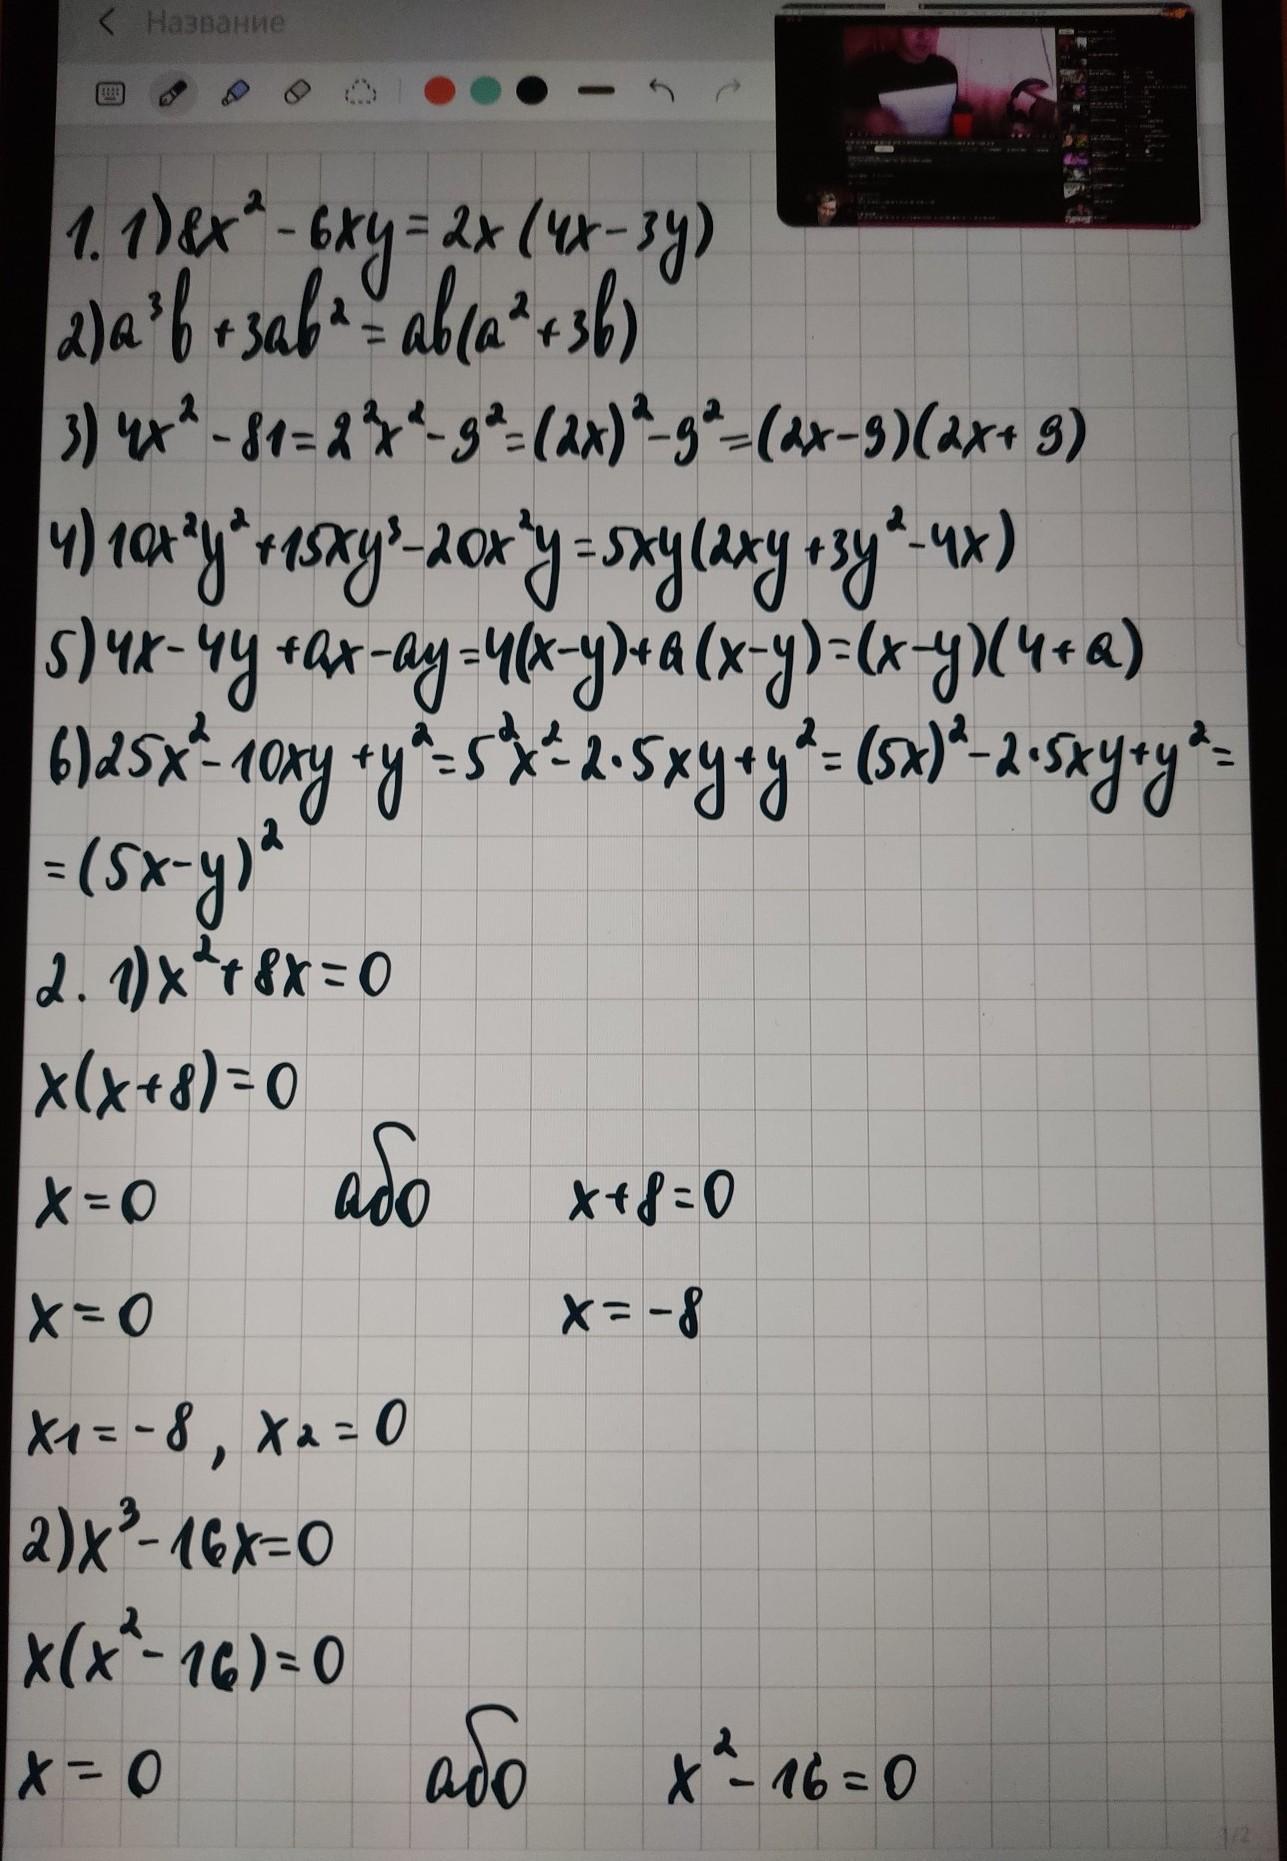 Название
1. 1) 8x² - 6xy = 2x (4x - 3y)
2) a³b + 3ab² = ab(a² + 3b)
3) 4x² - 81 = 2²x² - 9² = (2x)² - 9² = (2x - 9)(2x + 9)
4) 10x²y² + 15xy³ - 20x²y = 5xy(2xy + 3y² - 4x)
5) 4x - 4y + ax - ay = 4(x - y) + a(x - y) = (x - y)(4 + a)
6) 25x² - 10xy + y² = 5²x² - 2·5xy + y² = (5x)² - 2·5xy + y² =
= (5x - y)²
2. 1) x² + 8x = 0
x(x + 8) = 0
x = 0 або x + 8 = 0
x = 0 x = -8
x1 = -8, x2 = 0
2) x³ - 16x = 0
x(x² - 16) = 0
x = 0 або x² - 16 = 0
1/2